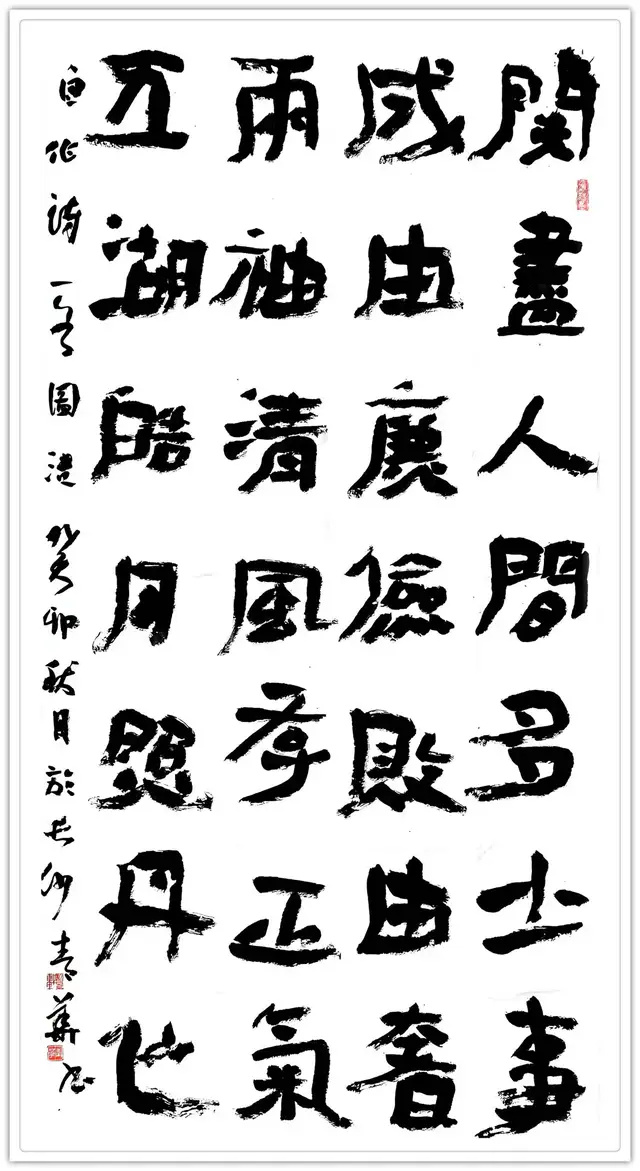 閱盡人間多少事
成由廉儉敗由奢
兩袖清風存正氣
五湖皓月照丹心
自作詩一首圖 癸卯秋月於長沙青華書